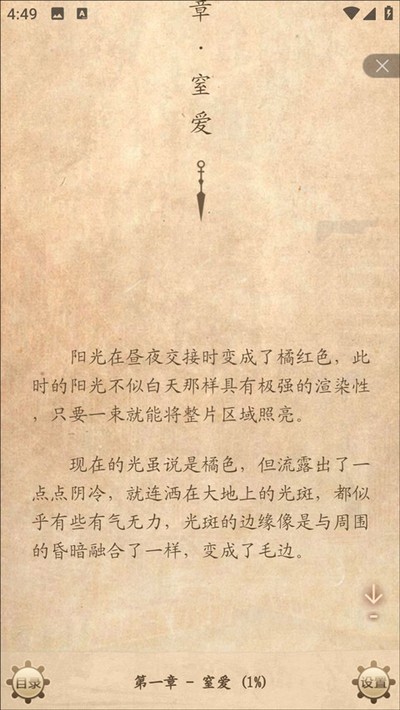 4:49
A
章
·
窒
爱
阳光在昼夜交接时变成了橘红色，此
时的阳光不似白天那样具有极强的渲染性
，只要一束就能将整片区域照亮。
现在的光虽说是橘色，但流露出了一
点点阴冷，就连洒在大地上的光斑，都似
乎有些有气无力，光斑的边缘像是与周围
的昏暗融合了一样，变成了毛边。
目录
第一章 - 窒爱 (1%)
设置